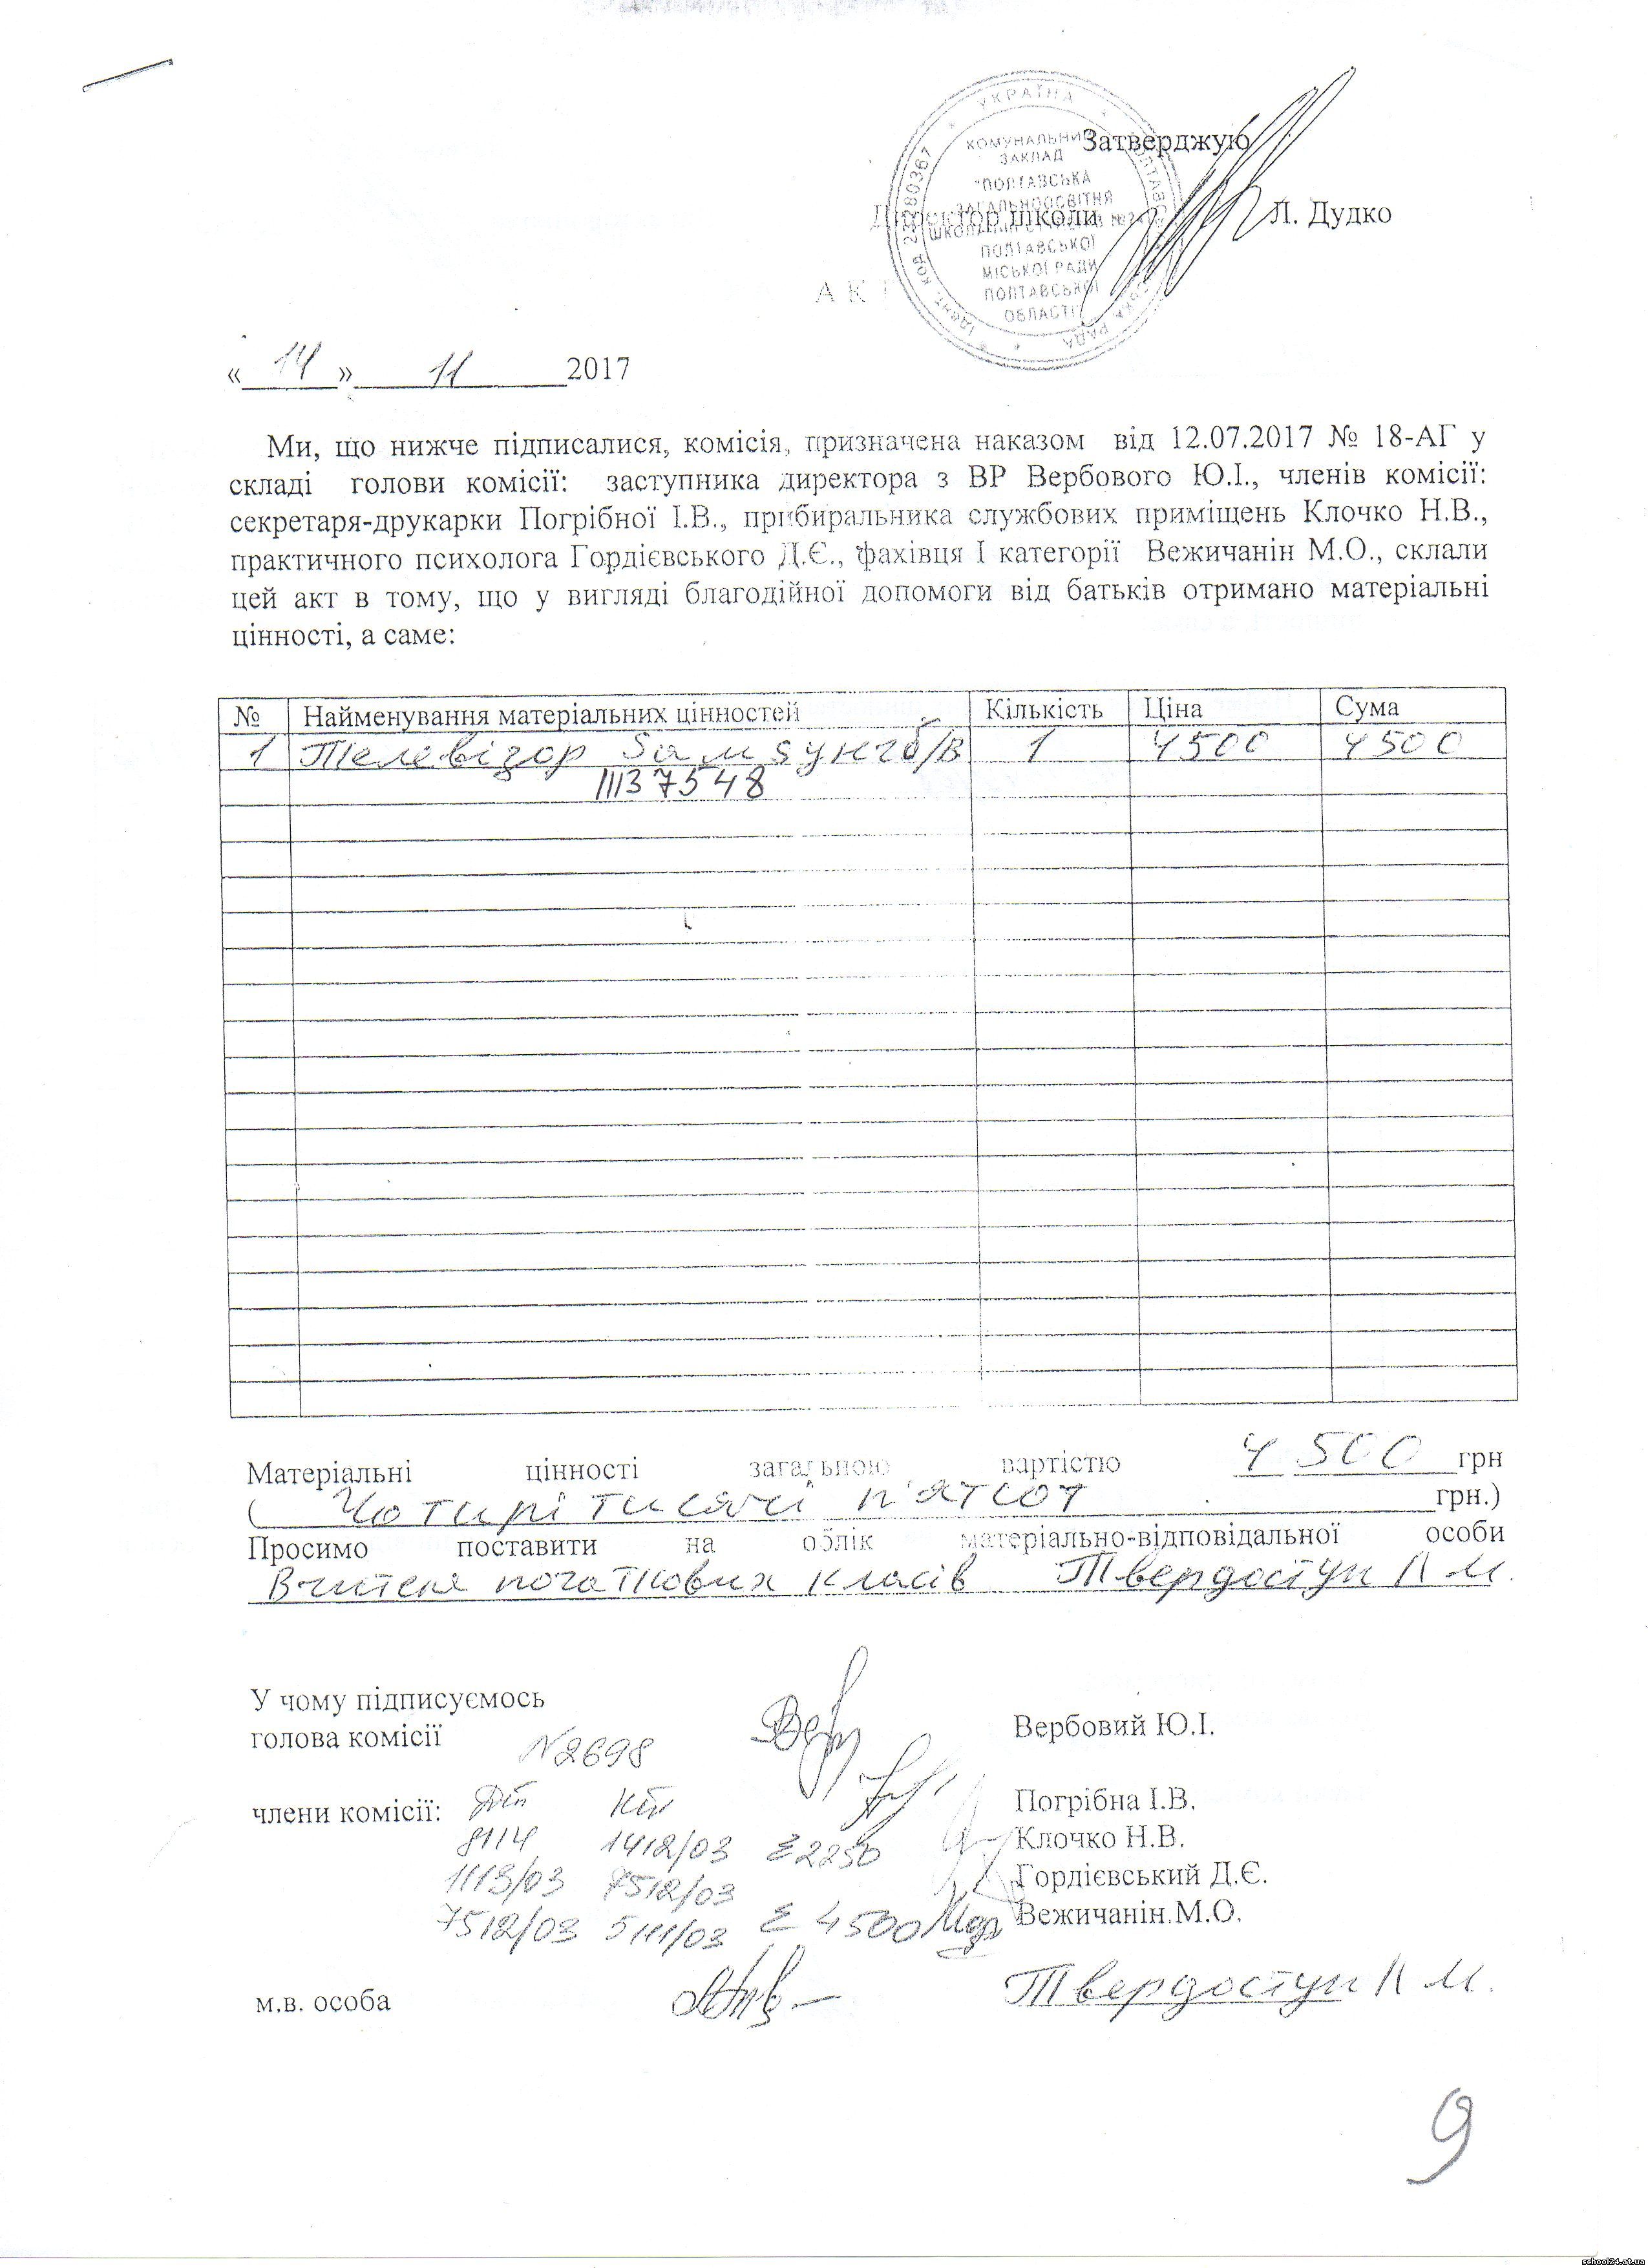 Затверджую
Директор школи Л. Дудко
УКРАЇНА
КОМУНАЛЬНИЙ
ЗАКЛАД
"ПОЛТАВСЬКА
ЗАГАЛЬНООСВІТНЯ
ШКОЛА
ПОЛТАВСЬКОЇ
МІСЬКОЇ РАДИ
ПОЛТАВСЬКОЇ
ОБЛАСТІ"
А К Т
« 14 » 11 2017
Ми, що нижче підписалися, комісія, призначена наказом від 12.07.2017 № 18-АГ у
складі голови комісії: заступника директора з ВР Вербового Ю.І., членів комісії:
секретаря-друкарки Погрібної І.В., прибиральника службових приміщень Клочко Н.В.,
практичного психолога Гордієвського Д.Є., фахівця І категорії Вежичанін М.О., склали
цей акт в тому, що у вигляді благодійної допомоги від батьків отримано матеріальні
цінності, а саме:
№ Найменування матеріальних цінностей Кількість Ціна Сума
1 Телевізор Samsунг б/в 1 4500 4500
11137548
Матеріальні цінності загальною вартістю 4 500 грн
( Чотирі тисячі п'ятсот грн.)
Просимо поставити на облік матеріально-відповідальної особи
Вчителя початкових класів Твердоступ Л М.
У чому підписуємось
голова комісії Вербовий Ю.І.
N2698
члени комісії: Дт Кт Погрібна І.В.
8114 1412/03 Σ2250 Клочко Н.В.
1113/03 7512/03 Гордієвський Д.Є.
7512/03 5111/03 Σ 4500 Вежичанін М.О.
м.в. особа Твердоступ Л М.
9
school24.at.ua